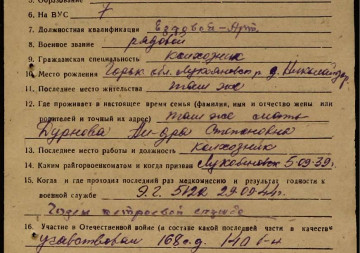 5. Образование
6. На ВУС 7
7. Должностная квалификация Ездовой-Арт.
8. Военное звание рядовой
9. Гражданская специальность колхозник
10. Место рождения Горьк. обл.
11. Последнее место жительства там же
12. Где проживает в настоящее время семья (фамилия, имя и отчество жены или
родителей и точный их адрес) там же мать
Дурнова Степановна
13. Последнее место работы и должность колхозник
14. Каким райгорвоенкоматом и когда призван 5.09.39г.
15. Когда и где проходил последний раз медкомиссию и результат годности к
военной службе 29.09.44г.
Годен к строевой службе
16. Участие в Отечественной войне (в составе какой последней части и в качестве
участвовал 168 с.д.